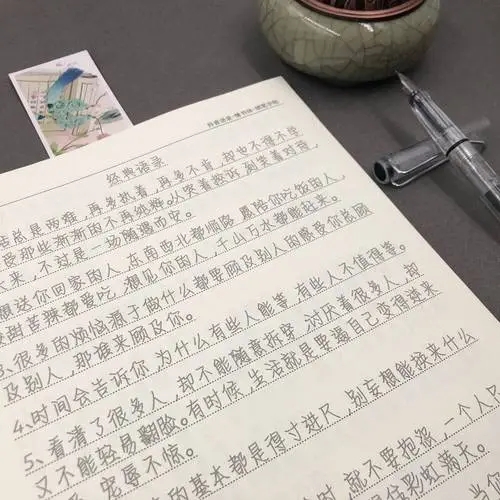 抖音语录·情书体·硬笔字帖
经典语录
活总是两难，再多执着，再多不肯，却也不得不学
受那些渐渐的不再纠缠。从哭着控诉，到笑着对待，
头来，不过是一场随遇而安。
想送你回家的人，东南西北都顺路，愿陪你吃饭的人，
酸甜苦辣都爱吃，想见你的人，千山万水都能赶来。
3、很多的烦恼源于做什么都要顾及别人的感受，你总顾
及别人，那谁来顾及你。
4、时间会告诉你，为什么有些人能等，有些人不值得等。
5、看清了很多人，却不能随意拆穿，讨厌着很多人，却
又不能轻易翻脸。有时候，生活就是要逼自己变得越来
宠辱不惊。
的基本都是得寸进尺，别妄想能换来什么
时，就不要抱怨，一个人
彩虹满天。